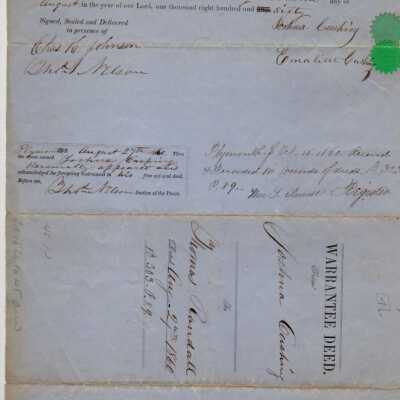 August in the year of our Lord, one thousand eight hundred and sixty
Signed, Sealed and Delivered
in presence of
Joshua Cushing
Chas B. Johnson
Emaline Cushing
Bhd. Nelson
Plymouth ss. August 27th 1860 Then
the above named Joshua Cushing
Personally appeared and
acknowledged the foregoing Instrument to be his free act and deed.
Before me,
Nelson Justice of the Peace.
Plymouth ss. 16. 1860. Received
& Recorded B. 303
P. 89.
Wm. S. Register
WARRANTEE DEED.
From
Joshua Cushing
to
Thomas Randall
Dated Aug. 27th 1860
B. 303. P. 89.